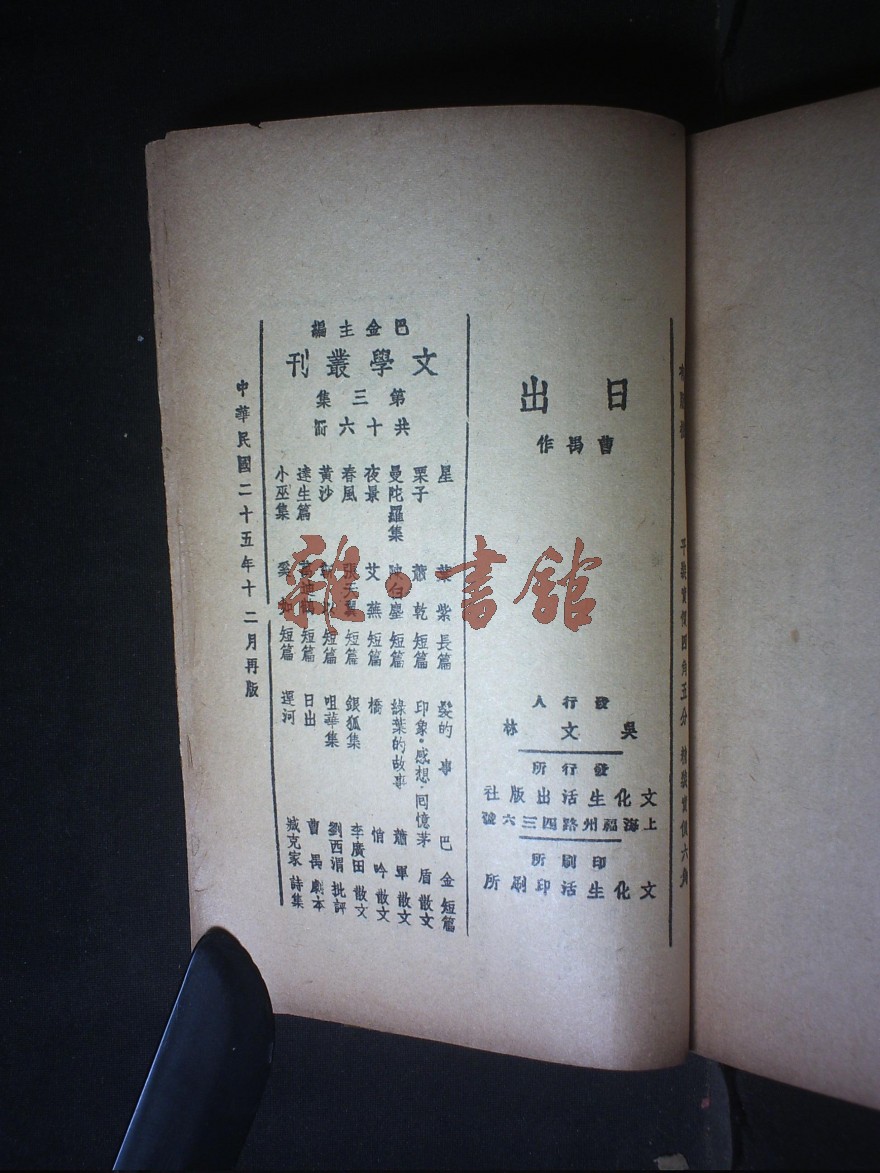 平裝實價四角五分 精裝實價六角
日出
曹禺作
發行人
吳文林
發行所
文化生活出版社
上海福州路四三六號
印刷所
文化生活印刷所
巴金主編
文學叢刊
第三集
共十六冊
星 葉紫 長篇
栗子 蕭乾 短篇
曼陀羅集 陳白塵 短篇
夜景 艾蕪 短篇
春風 張天翼 短篇
黃沙 短篇
達生篇 萬迪鶴 短篇
小巫集 奚如 短篇
髮的 事 巴金 短篇
印象·感想·回憶 茅盾 散文
綠葉的故事 蕭軍 散文
橋 悄吟 散文
銀狐集 李廣田 散文
咀華集 劉西渭 批評
日出 曹禺 劇本
運河 臧克家 詩集
中華民國二十五年十二月再版
雜·書館